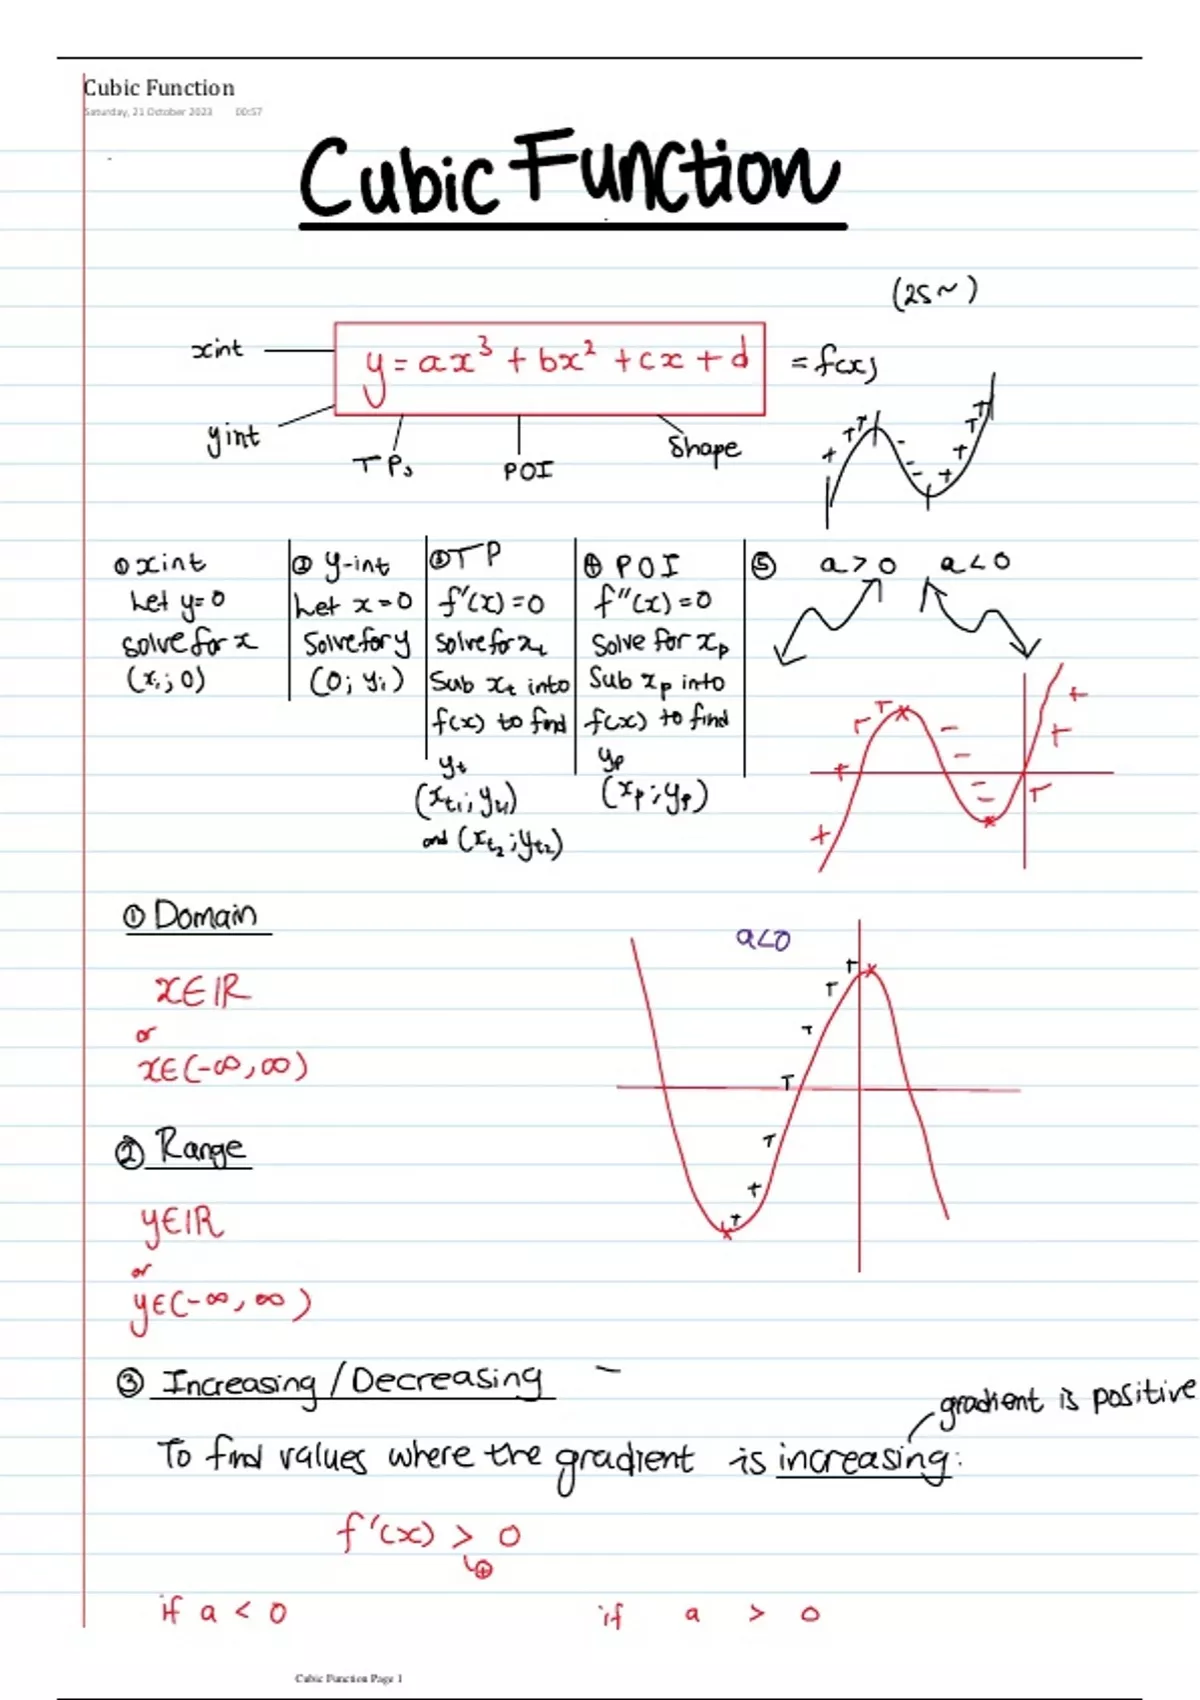 Cubic Function
Saturday, 21 October 2023 00:57
Cubic Function
(25~)
x int
y = ax³ + bx² + cx + d = f(x)
y int
TPs
POI
Shape
① x int
Let y=0
solve for x
(x₁; 0)
② y-int
Let x=0
Solve for y
(0; y₁)
③ TP
f'(x)=0
Solve for xₜ
Sub xₜ into
f(x) to find
yₜ
(xₜ₁; yₜ₁)
and (xₜ₂; yₜ₂)
④ POI
f''(x)=0
Solve for xₚ
Sub xₚ into
f(x) to find
yₚ
(xₚ; yₚ)
⑤ a>0 a<0
① Domain
x∈ℝ
or
x∈(-∞,∞)
a<0
② Range
y∈ℝ
or
y∈(-∞,∞)
③ Increasing/Decreasing
gradient is positive
To find values where the gradient is increasing:
f'(x) > 0
↳⊕
if a < 0 if a > 0
Cubic Function Page 1